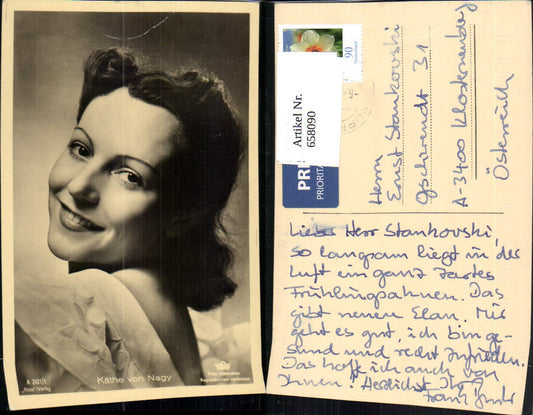 Käthe von Nagy
A 2421/1
"Ross"-Verlag
Foto
Reproduktion verboten
90
Artikel Nr.
658090
PRI
PRIORITA
Herrn
Ernst Stankovski
Gschwendt 31
A-3400 Klosterneuburg
Österreich
Lieber Herr Stankovski,
so langsam liegt in der
Luft ein ganz zartes
Frühlingsahnen. Das
gibt neuen Elan. Mir
geht es gut, ich bin ge-
sund und recht zufrieden.
Das hoff ich auch von
Ihnen! Herzlichst Ihr
Frank